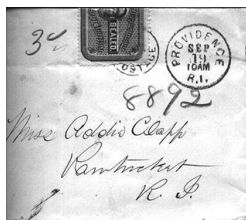 3c
POSTAGE
PROVIDENCE
SEP
19
10AM
R.I.
8892
Miss Addie Clapp
Pawtucket
R. I.